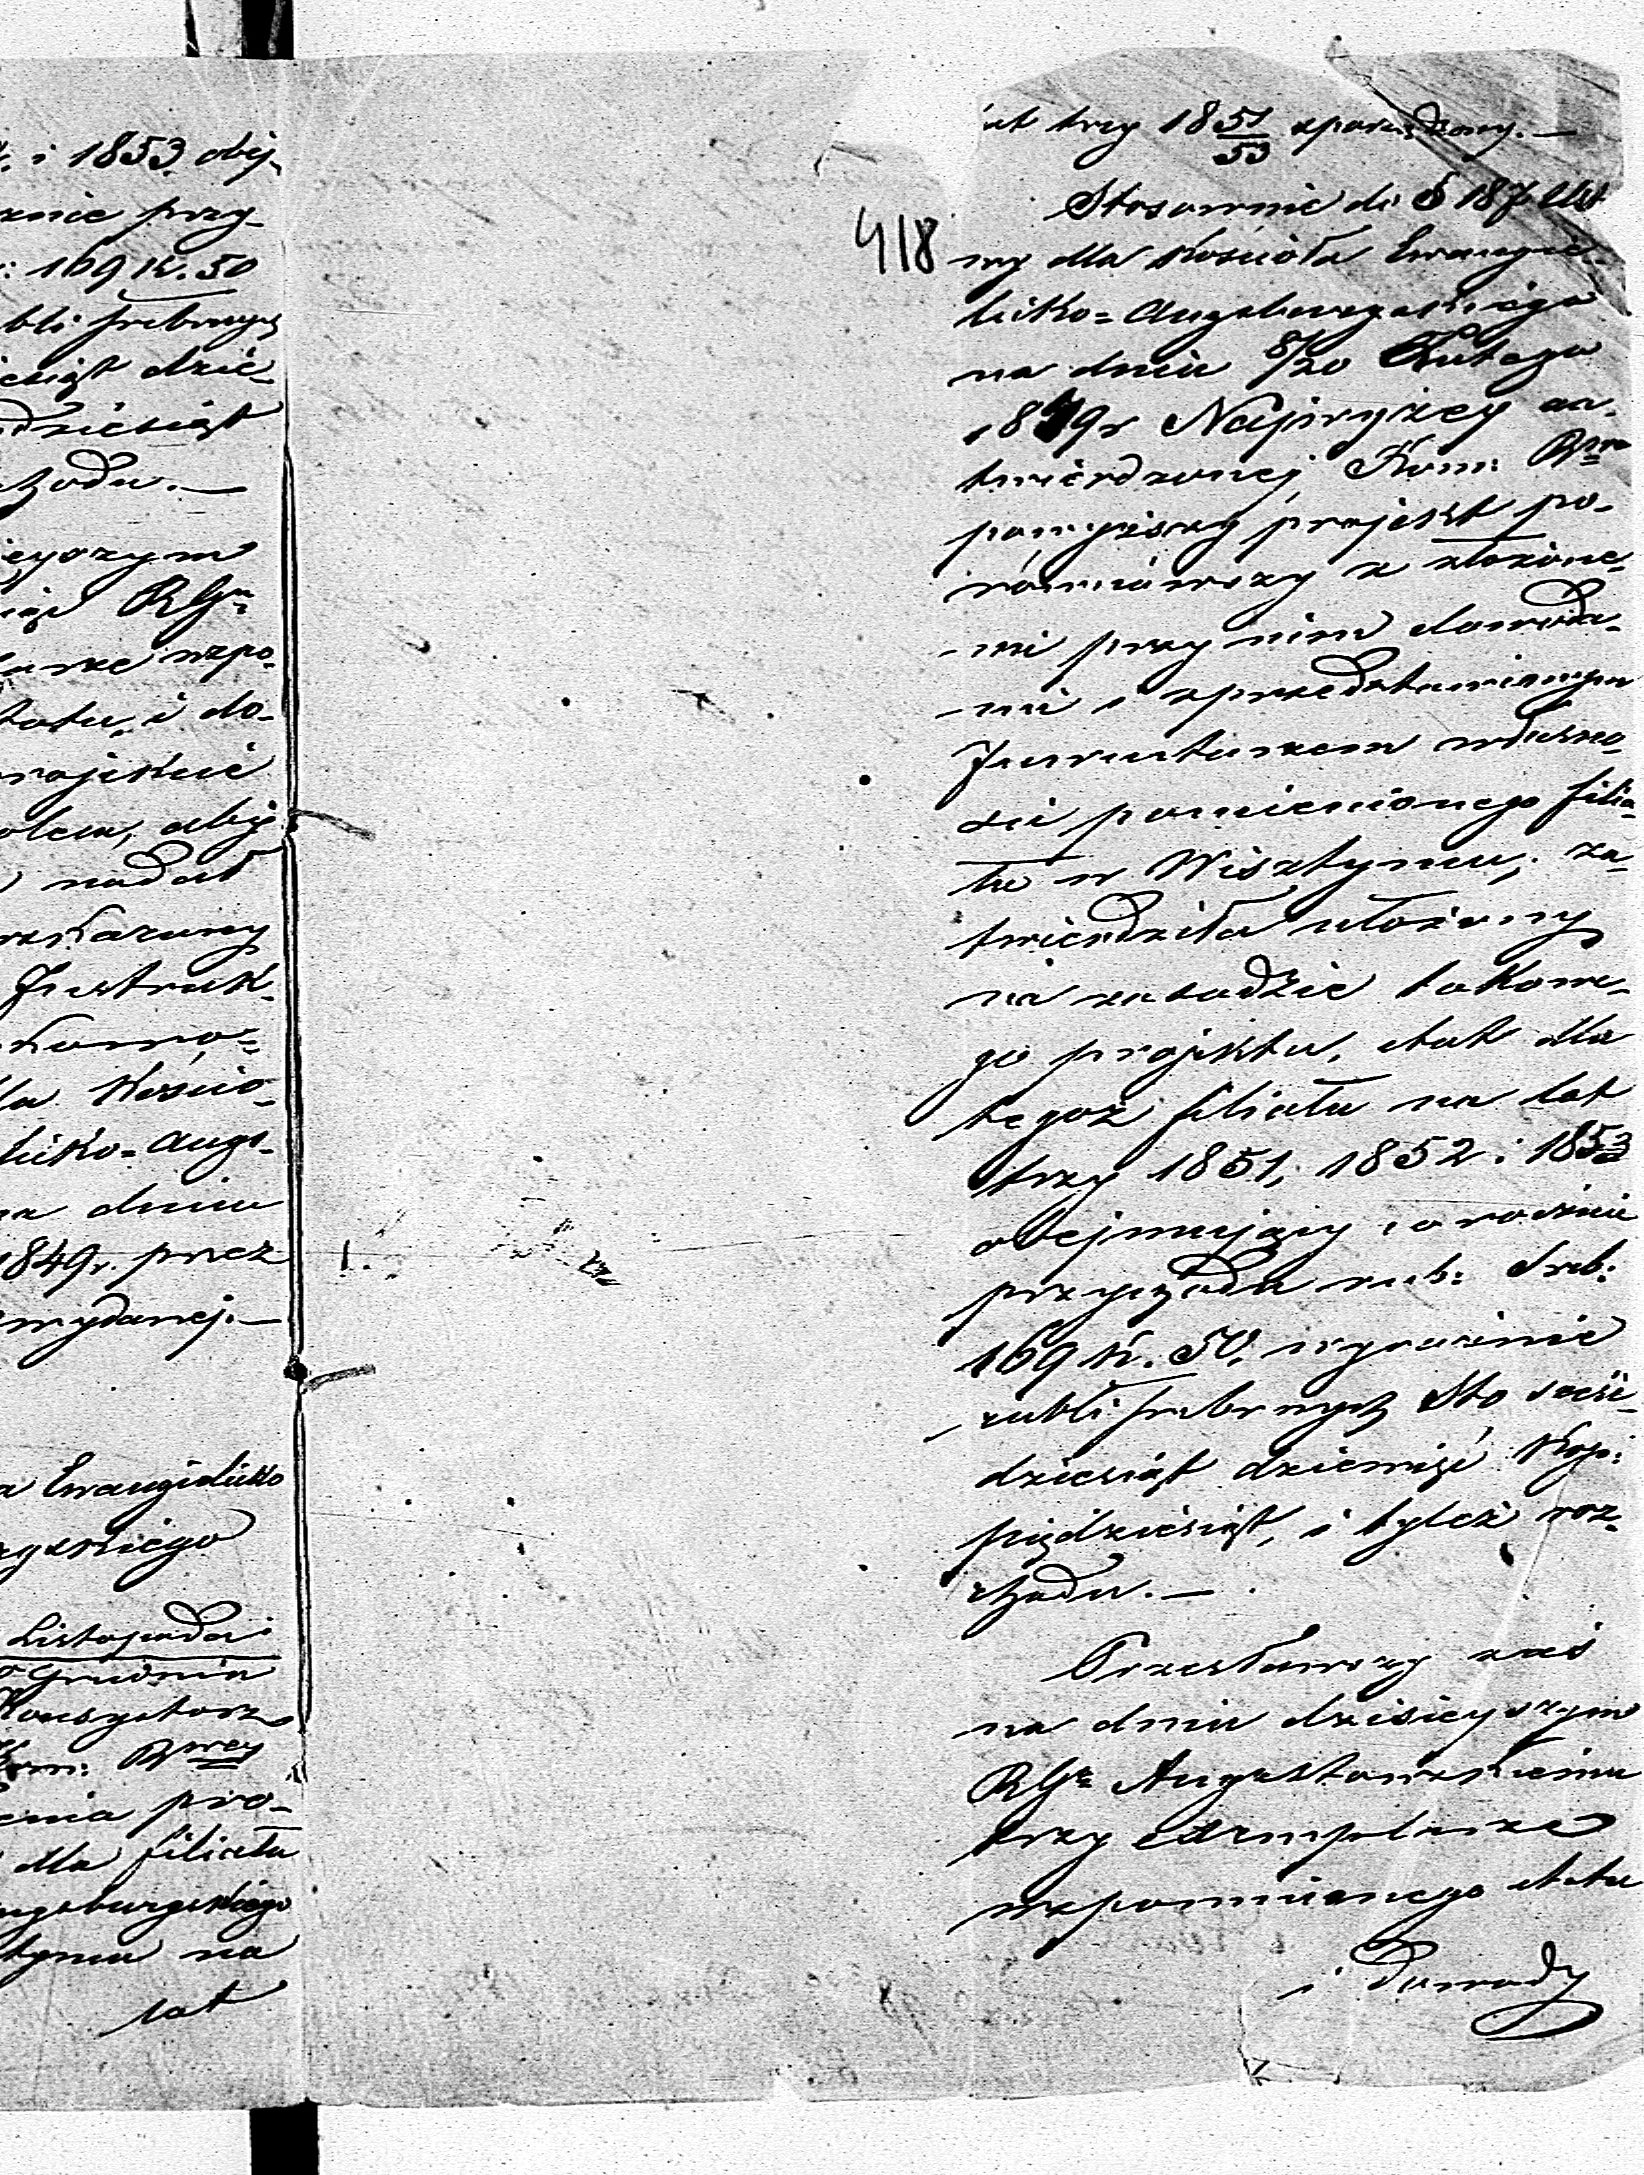 i 1853 obej-
znie przy-
169 k. 50
bli srebrnych
dzie-
dziesiąt
chodu. —
szym
RGu
wspo-
tatu, i do-
projekcie
olem, aby
nadal
wskazany
Instruk-
Kościo-
licko-Augs-
na dniu
1849 r. przez
wydanej. —
a Ewangielicko
skiego
Listopada
Grudnia
Konsystorz
Kom: Rwey
enia pro-
dla filiału
ugsburgskiego
tyńcu na
lat
lat trzy 1851/53 sporządzony. —
418
Stosownie do § 187 Usta
wy dla Kościoła Ewangie-
licko-Augsburgskiego
na dniu 8/20 Lutego
1849 r Najwyżey za-
twierdzonej Kom: Rwa
powyższy projekt po-
równawszy z złożone-
mi przy nim dowoda-
mi i z przedstawionym
Inwentarzem własno-
ści pomienionego filia-
łu w Wisztyncu, za-
twierdziła ułożony
na zasadzie takowe-
go projektu, etat dla
tegoż filiału na lat
trzy 1851, 1852 i 1853
obejmujący co rocznie
przychodu rub: srb:
169 k. 50, wyraźnie
rubli srebrnych Sto sześć-
dziesiąt dziewięć kop:
pięćdziesiąt, i tyleż roz-
chodu. —
Przesławszy zaś
na dniu dzisieyszym
RGu Augustowskiemu
trzy exemplarze
wspomnianego etatu
i Dowody